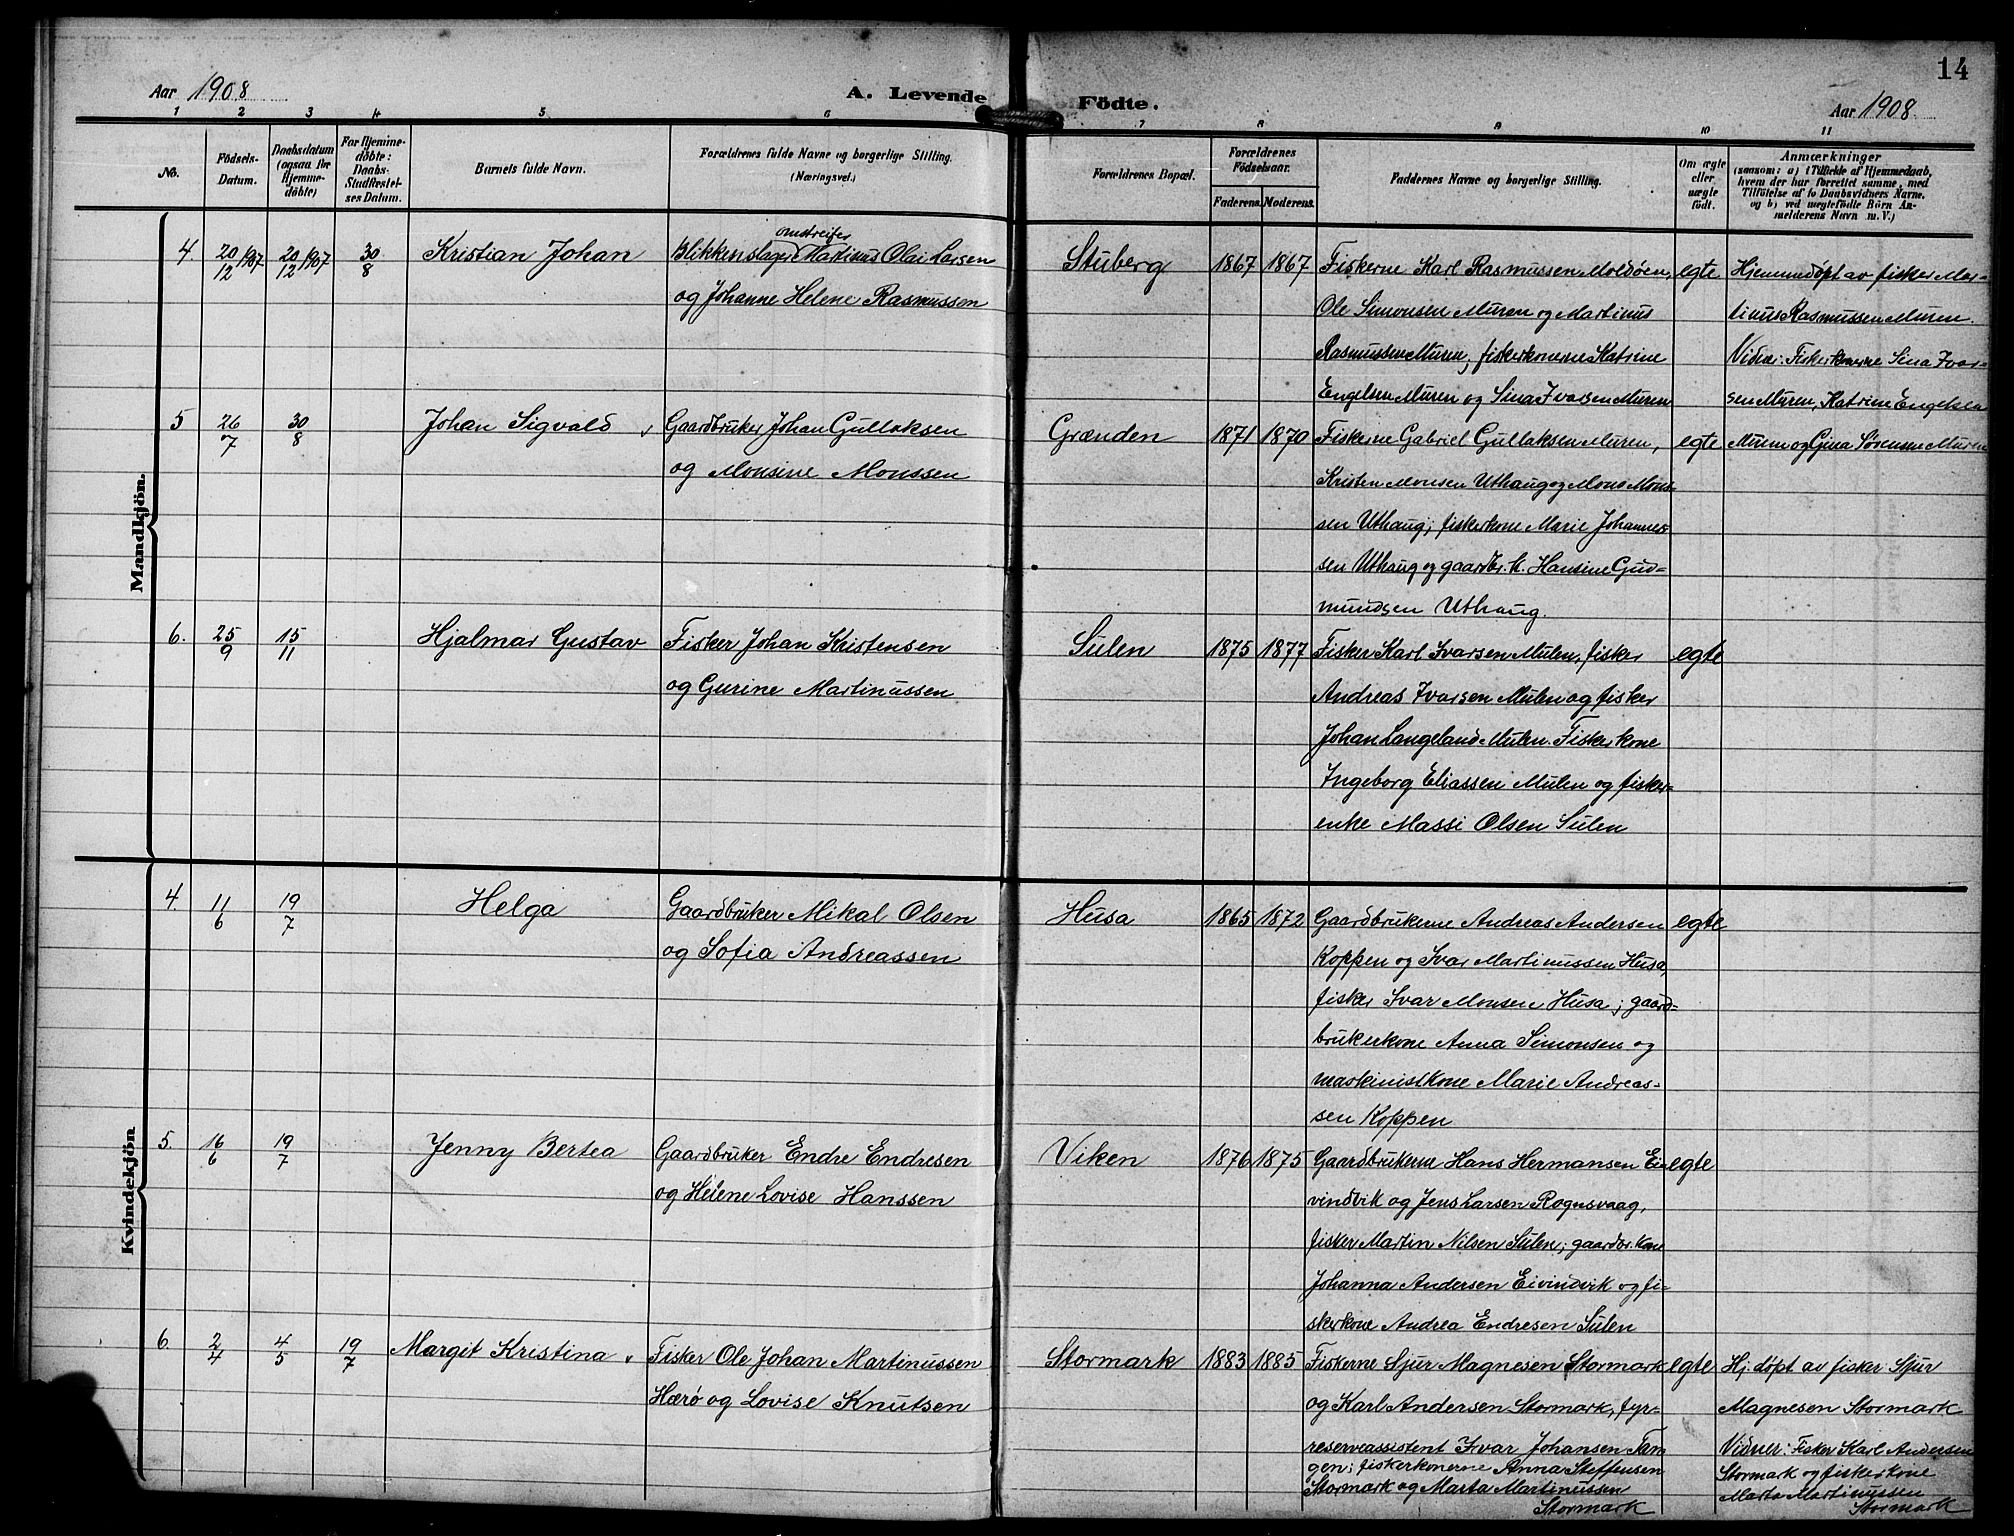 14
Aar 1908 A. Levende Födte. Aar 1908
1 2 3 4 5 6 7 8 9 10 11
No. Födsels-Datum. Daabsdatum (ogsaa for Hjemmedöbte) For Hjemmedöbte: Daabs-Stadfæstelses Datum. Barnets fulde Navn. Forældrenes fulde Navne og borgerlige Stilling. (Næringsvei.) Forældrenes Bopæl. Forældrenes Födselsaar. Faderens. Moderens. Faddernes Navne og borgerlige Stilling. Om ægte eller uægte født. Anmærkninger (saasom: a) i Tilfælde af Hjemmedaab, hvem der har forrettet samme, med Tilföielse af to Daabsvidners Navne, og b) ved uægtefödte Börn Anmelderens Navn m. V.)
Mandkjön.
4 20/12 1907 20/12 1907 30/8 Kristian Johan
omstreifer
Blikkenslager Martinus Olai Larsen
og Johanne Helene Rasmussen
Stuberg 1867 1867
Fiskerne Karl Rasmussen Moldöen,
Ole Simonsen Muren og Martinus
Rasmussen Muren, fiskerkonerne Katrine
Engelsen Muren og Sina Ivarsen Muren
egte
Hjemmedöpt av fisker Mar-
tinus Rasmussen Muren.
Vidner: Fiskerkonerne Sina Ivar-
sen Muren, Katrine Engelsen
Muren og Gina Sörensen Muren
5 26/7 30/8 Johan Sigvald
Gaardbruker Johan Gullaksen
og Monsine Monssen
Grænden 1871 1870
Fiskerne Gabriel Gullaksen Muren,
Kristen Monsen Uthaug og Mons Mons-
sen Uthaug; fiskerkone Marie Johannes-
sen Uthaug og gaardbr. k. Hansine Gud-
mundsen Uthaug.
egte
6. 25/9 15/11 Hjalmar Gustav
Fisker Johan Kristensen
og Gurine Martinussen
Sulen 1875 1877
Fisker Karl Ivarsen Mulen, fisker
Andreas Ivarsen Mulen og fisker
Johan Langeland Mulen. Fiskerkone
Ingeborg Eliassen Mulen og fisker-
enke Massi Olsen Sulen
egte
Kvindekjön
4. 11/6 19/7 Helga
Gaardbruker Mikal Olsen
og Sofia Andreassen
Husa 1865 1872
Gaardbrukerne Andreas Andersen
Koppen og Ivar Martinussen Husa,
fisker Ivar Monsen Husa; gaard-
brukerkone Anna Simonsen og
maskinistkone Marie Andreas-
sen Koppen
egte
5. 16/6 19/7 Jenny Bertea
Gaardbruker Endre Endresen
og Helene Lovise Hanssen
Viken 1876 1875
Gaardbrukerne Hans Hermansen Ei-
vindvik og Jens Larsen Rognsvaag,
fisker Martin Nilsen Sulen; gaardbr. kone
Johanna Andersen Eivindvik og fi-
skerkone Andrea Endresen Sulen
egte
6. 2/4 4/5 19/7 Margit Kristina
Fisker Ole Johan Martinussen
Hærö og Lovise Knutsen
Stormark 1883 1885
Fiskerne Sjur Magnesen Stormark
og Karl Andersen Stormark, fyr-
reserveassistent Ivar Johansen Tan-
gen; fiskerkonerne Anna Steffensen
Stormark og Marta Martinussen
Stormark
egte
Hj. döpt av fisker Sjur
Magnesen Stormark
Vidner: Fisker Karl Andersen
Stormark og fiskerkone
Marta Martinussen
Stormark